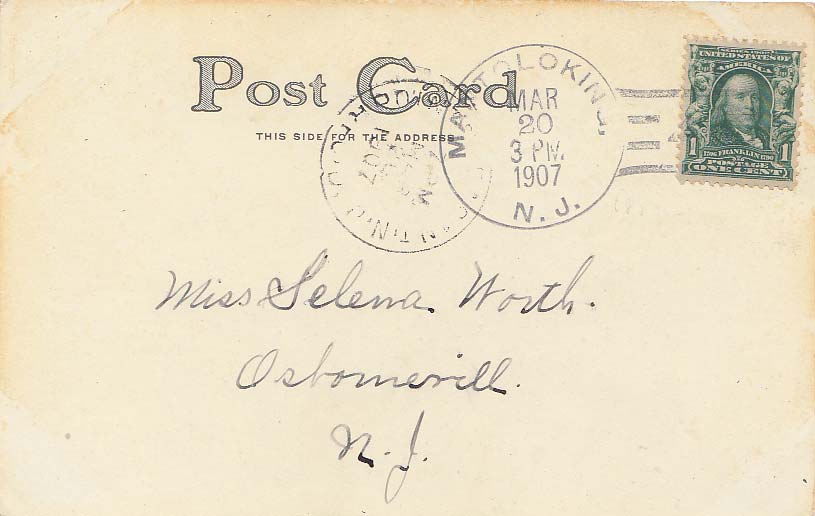 Post Card
THIS SIDE FOR THE ADDRESS
MANTOLOKING,
MAR
20
3 PM
1907
N. J.
SERIES 1902
UNITED STATES OF
AMERICA
1 1
1706 FRANKLIN 1790
POSTAGE
ONE CENT
Miss Selena Worth.
Osbornevill.
N. J.